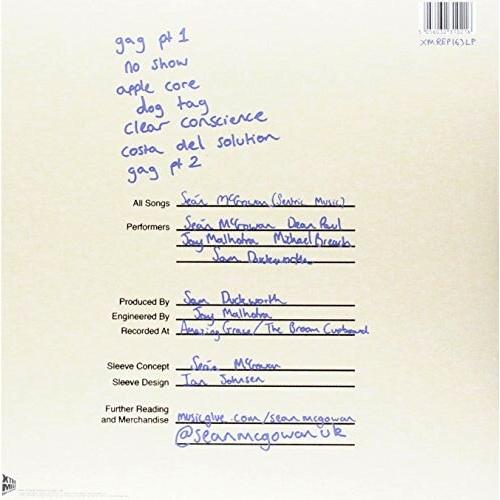 XMREP163LP
gag pt 1
no show
apple core
dog tag
clear conscience
costa del solution
gag pt 2
All Songs Seán McGowan (Sentric Music)
Performers Seán McGowan Dean Paul
Jay Malhotra Michael Breach
Sam Duckworth
Produced By Sam Duckworth
Engineered By Jay Malhotra
Recorded At Amazing Grace/The Broom Cupboard
Sleeve Concept Seán McGowan
Sleeve Design Ian Johnsen
Further Reading musicglue.com/seanmcgowan
and Merchandise @seanmcgowanuk
XTRA
MILE